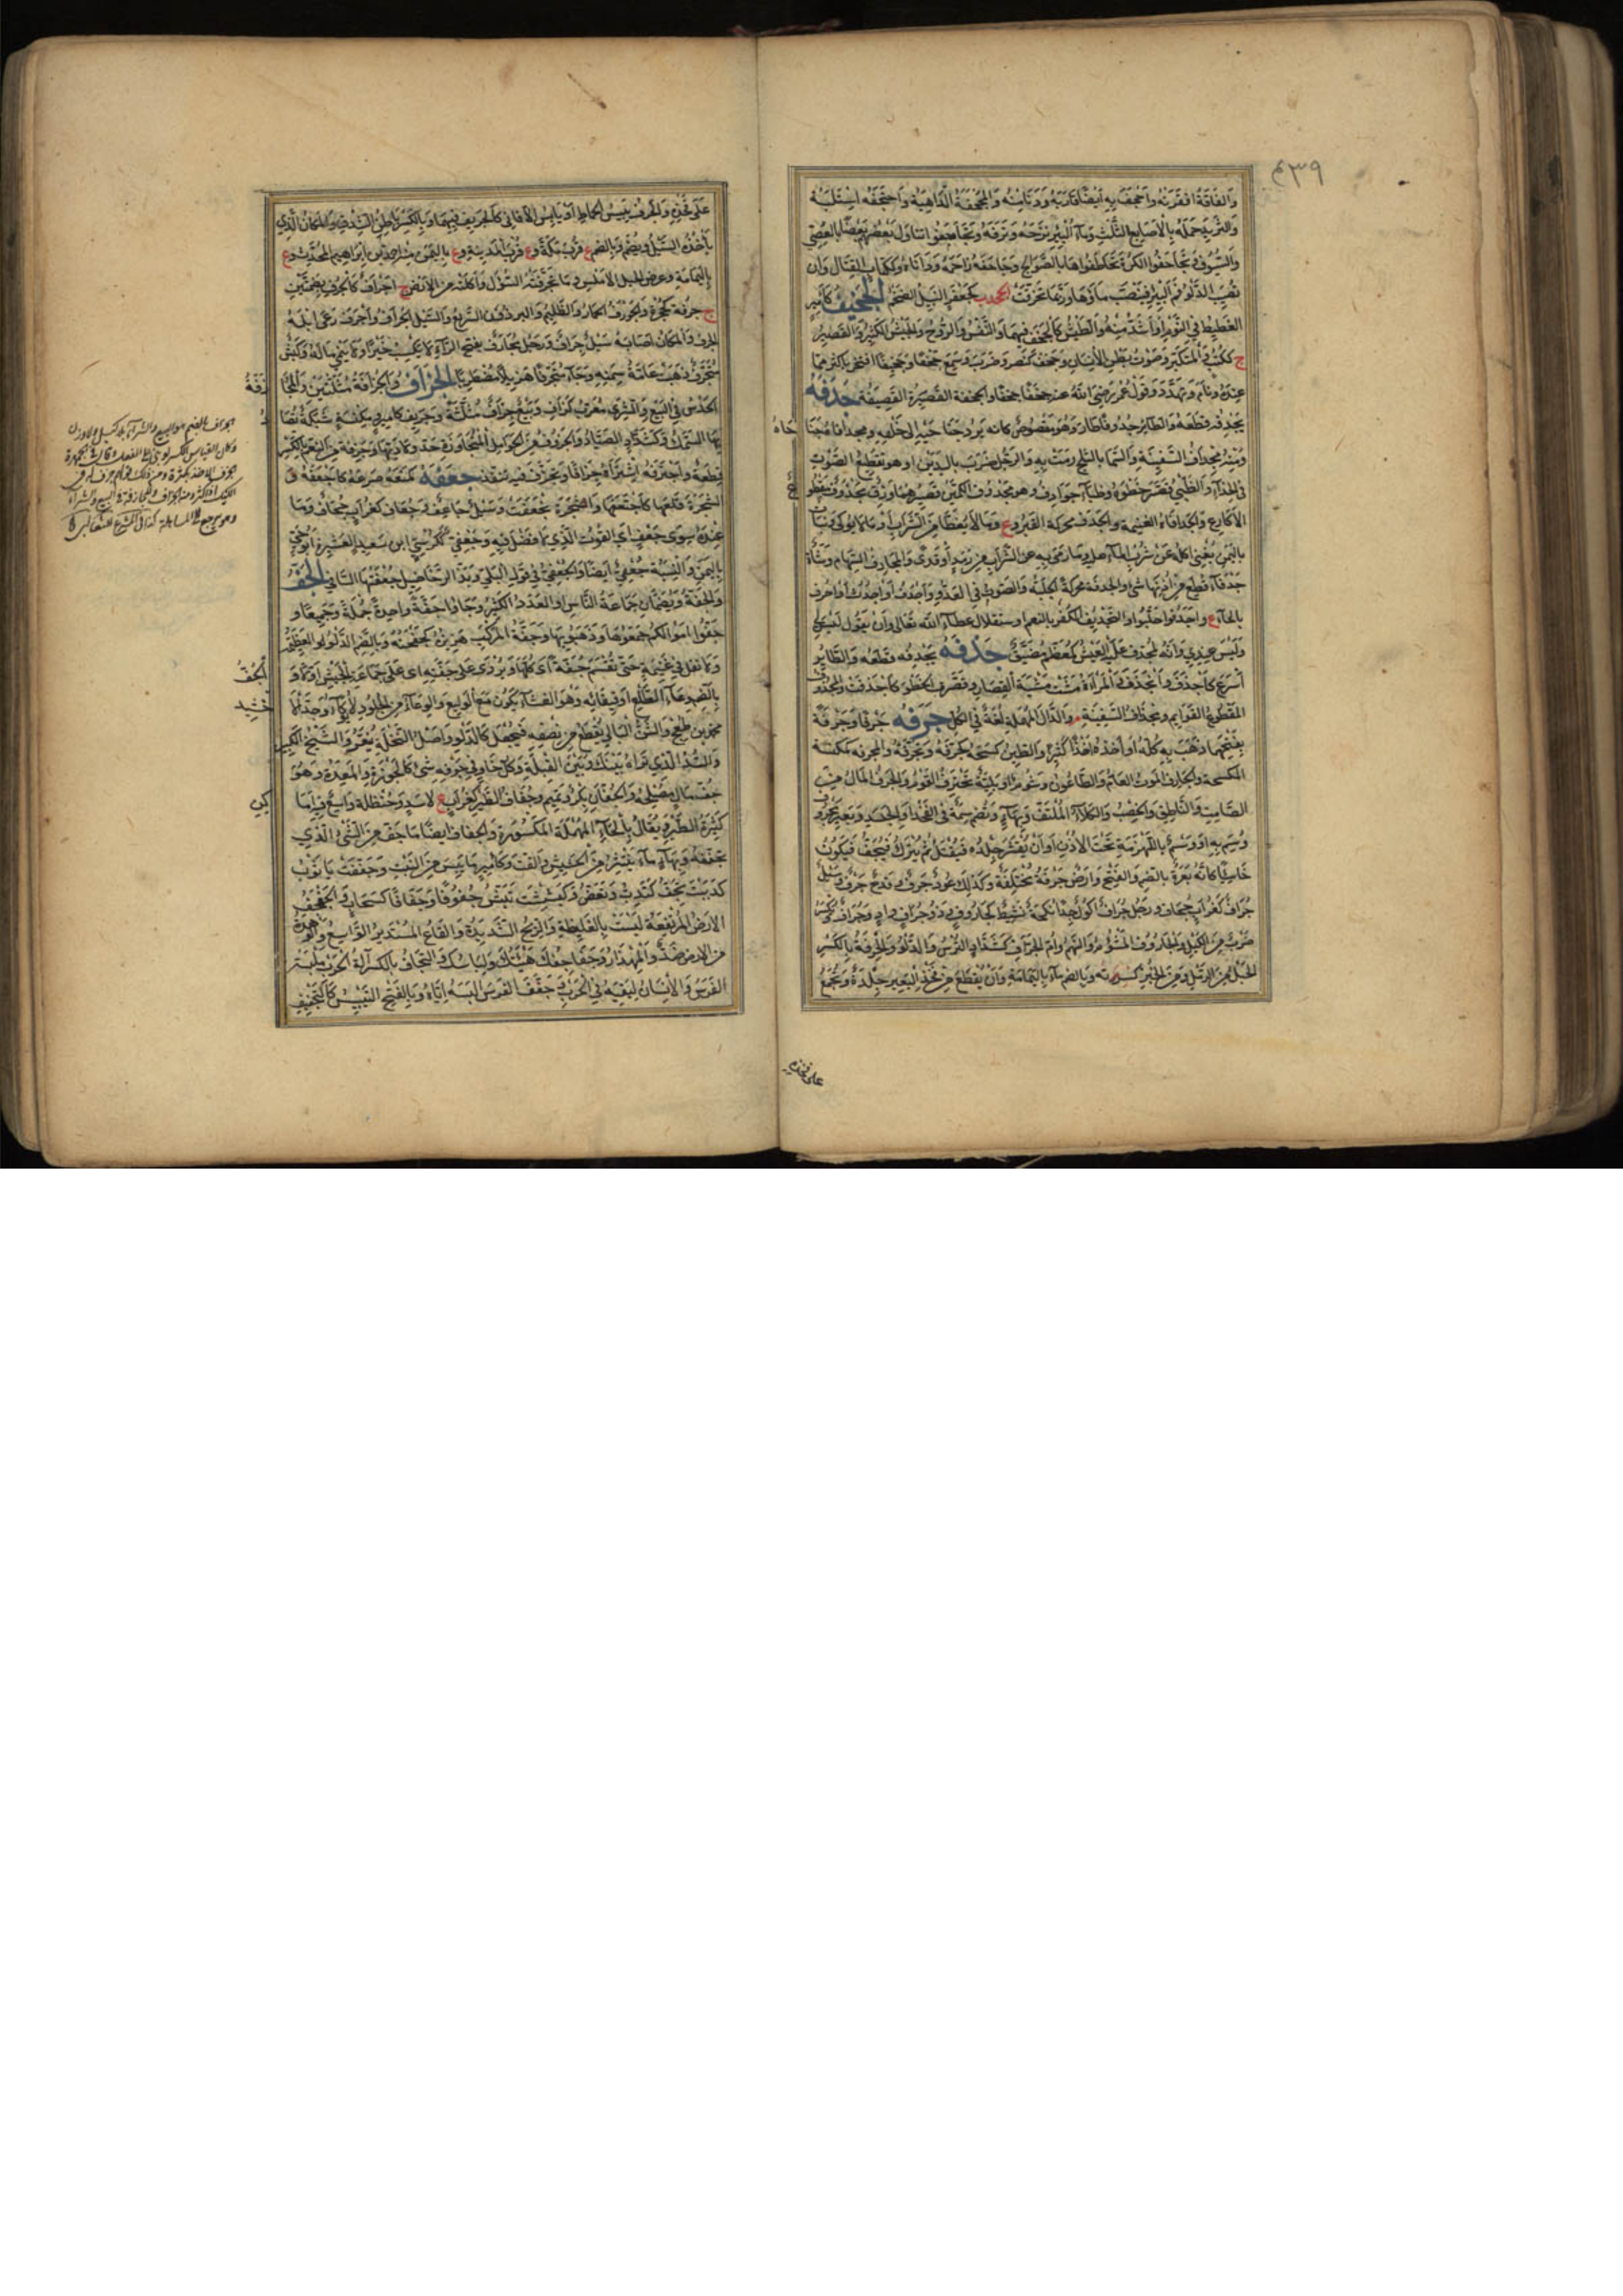 ٤٣٩
والفاقة افقرته واجحف به ايضا قاربه ودنا منه والمجحفة الداهية واجتحفه استلبه
والثريد حمله بالاصابع الثلث وماء البئر نزحه ونزفه وتجاحفوا تناول بعضهم بعضا بالعصى
والسيوف وتجاحفوا الكرة تخاطفوها بالصوالج وجاحفه زاحمه وداناه وككتاب القتال وان
تصيب الدلو فم البئر فينصب ماؤها وربما تخرقت كجعفر النبيل الضخم الجخيف كامير
الغطيط في النوم او اشد منه والطيش كالجخف فيهما والنفس والروح والجيش الكثير والقصير
ج ككتب والمتكبر وصوت بطن الانسان وجخف كنصر وضرب وسمع جخفا وجخيفا افتخر باكثر مما
عنده ونام وتهدد وقول عمر رضي الله عنه جخفا جخفا والجخفة القصيرة القصيفة جدفه
يجدفه قطعه والطائر جدوفا طار وهو مقصوص كانه يرد جناحيه الى خلفه ومجدافاه جناحاه
ومنه مجداف السفينة والسماء بالثلج رمت به والرجل ضرب باليدين او هو تقطيع الصوت
في الحداء والظبي قصر خطوه وظباء جوادف وهو مجدوف الكمين قصيرهما وزق مجدوف مقطوع
الاكارع والجدافاء الغنيمة والجدف محركة القبر وع وما لا يغطى من الشراب او ما لا يوكى ونبات
باليمن يغني اكله عن شرب الماء عليه وما رمي به عن الشراب من زبد او قذى والمجادف السهام وشاة
جدفاء قطع من اذنها شئ والجدفة محركة الجلبة والصوت في العدو واجدف او اجدث او احرف
بالحاء ع واجدفوا جلبوا والتجديف الكفر بالنعم او ستقلال عطاء الله تعالى وان يقول ليس لي
وليس عندي وانه لمجدف عليه العيش كمعظم مضيق جذفه يجذفه قطعه والطائر
اسرع كاجذف وانجذف والمراة مشت مشية القصار وقصرت الخطو كاجذفت والمجذوف
المقطوع القوائم ومجذاف السفينة م والدال المهملة لغة في الكل جرفه جرفا وجرفة
بفتحهما ذهب به كله او اخذه اخذا كثيرا والطين كسحه كجرفه وتجرفه والمجرفة كمكنسة
المكسحة والجارف الموت العام والطاعون وشؤم او بلية تجترف القوم والجرف المال من
الصامت والناطق والخصب والكلاء الملتف وبهاء وتضم سمة في الفخذ او الجسد وبعير مجروف
وسم به او وسم باللهزمة تحت الاذن او ان يقشر جلده فيفتل ثم يترك فيجف فيكون
جاسئا كانه بعرة بالضم والفتح وارض جرفة مختلفة وكذلك عود جرف وقدح جرف وسيل
جراف كغراب جحاف ورجل جراف اكول جدا نكحة نشيط كجاروف وذو جراف واد وجراف ويكسر
ضرب من الكيل والجاروف المشؤم والنهم وام الجراف كشداد الترس والدلو والجرفة بالكسر
الحبل من الرمل ومن الخبز كسرته وبالضم ماء باليمامة وان يقطع من فخذ البعير جلدة وتجمع
على فخذه
على فخذه والجرف يبيس الحماط او يابس الافاني كالجريف فيهما وبالكسر باطن الشدق والمكان الذي
ياخذه السيل ويضم وبالضم ع قرب مكة وع قرب المدينة وع باليمن منه احمد بن ابراهيم المحدث وع
باليمامة وعرض الجبل الاملس وما تجرفته السيول واكلته من الارض ج اجراف كالجرف بضمتين
ج جرفة كجحرة والجورف الحمار والظليم والبرذون السريع والسيل الجراف واجرف رعى ابله
الجرف والمكان اصابه سيل جراف ورجل مجارف بفتح الراء لا يكسب خيرا ولا ينمي ماله وكبش
متجرف ذهب عامة سمنه وجاء متجرفا هزيلا مضطربا الجزاف والجزافة مثلثتين والمجازفة
الحدس في البيع والشرى معرب كزاف وبيع جزاف مثلثة وجزيف كامير ومكنسة شبكة يصاد
بها السمك وكشداد الصياد والجزوف من الحوامل المتجاوزة حد ولادتها وجزفة من النعم بالكسر
قطعة واجتزفه اشتراه جزافا وتجزف فيه تنفذ جعفه كمنعه صرعه كاجعفه و
الشجرة قلعها كاجتعفها والشجرة تجعفت وسيل جاعف وجعاف كغراب جحاف وما
عنده سوى جعف اي القوت الذي لا فضل فيه وجعفي ككرسي ابن سعد العشيرة ابو حي
باليمن والنسبة جعفي ايضا والجعفي في قوله البلى وبذ الرخاضيل جعفها الساقي الجف
والجفة ويضمان جماعة الناس او العدد الكثير وجاؤا جفة واحدة جملة وجميعا و
جفوا اموالكم جمعوها وذهبوا بها وجفة الموكب هزيزه كجفجفته وبالضم الدلو العظيمة
ولا نفل في غنيمة حتى تقسم جفة اي كلها ويروى على جفته اي على جماعة الجيش اولا والجف
بالضم وعاء الطلع او قيقاءه وهو الغشاء يكون مع الوليع والوعاء من الجلود لا يوكأ وجد الاخشيد
محمد بن طغج والشن البالي يقطع من نصفه فيجعل كالدلو واصل النخلة ينقر والشيخ الكبير
والسد الذي تراه بينك وبين القبلة وكل خاو في جوفه شئ كالجوزة والمغدة وهو
جف مال مصلحه والجفان بكر وتميم وجفاف الطير كغراب ع لاسد وحنظلة واسع فيه اماكن
كثيرة الطير ويقال بالحاء المهملة المكسورة والجفاف ايضا ما جف من الشئ الذي
تجففه وبهاء ماء ينتثر من الحشيش والقت وكامير ما يبس من النبت وجففت يا ثوب
كدببت تجف كتدب وتعض وكبششت تبش جفوفا وجفافا كسحاب والجفجف
الارض المرتفعة ليست بالغليظة والريح الشديدة والقاع المستدير الواسع والوهدة
من الارض ضد والمهذار وجفاجفك هيئتك ولباسك والتجفاف بالكسر آلة الحرب يلبسه
الفرس والانسان ليقيه في الحرب وجفف الفرس البسه اياه وبالفتح التيبيس كالتجفيف